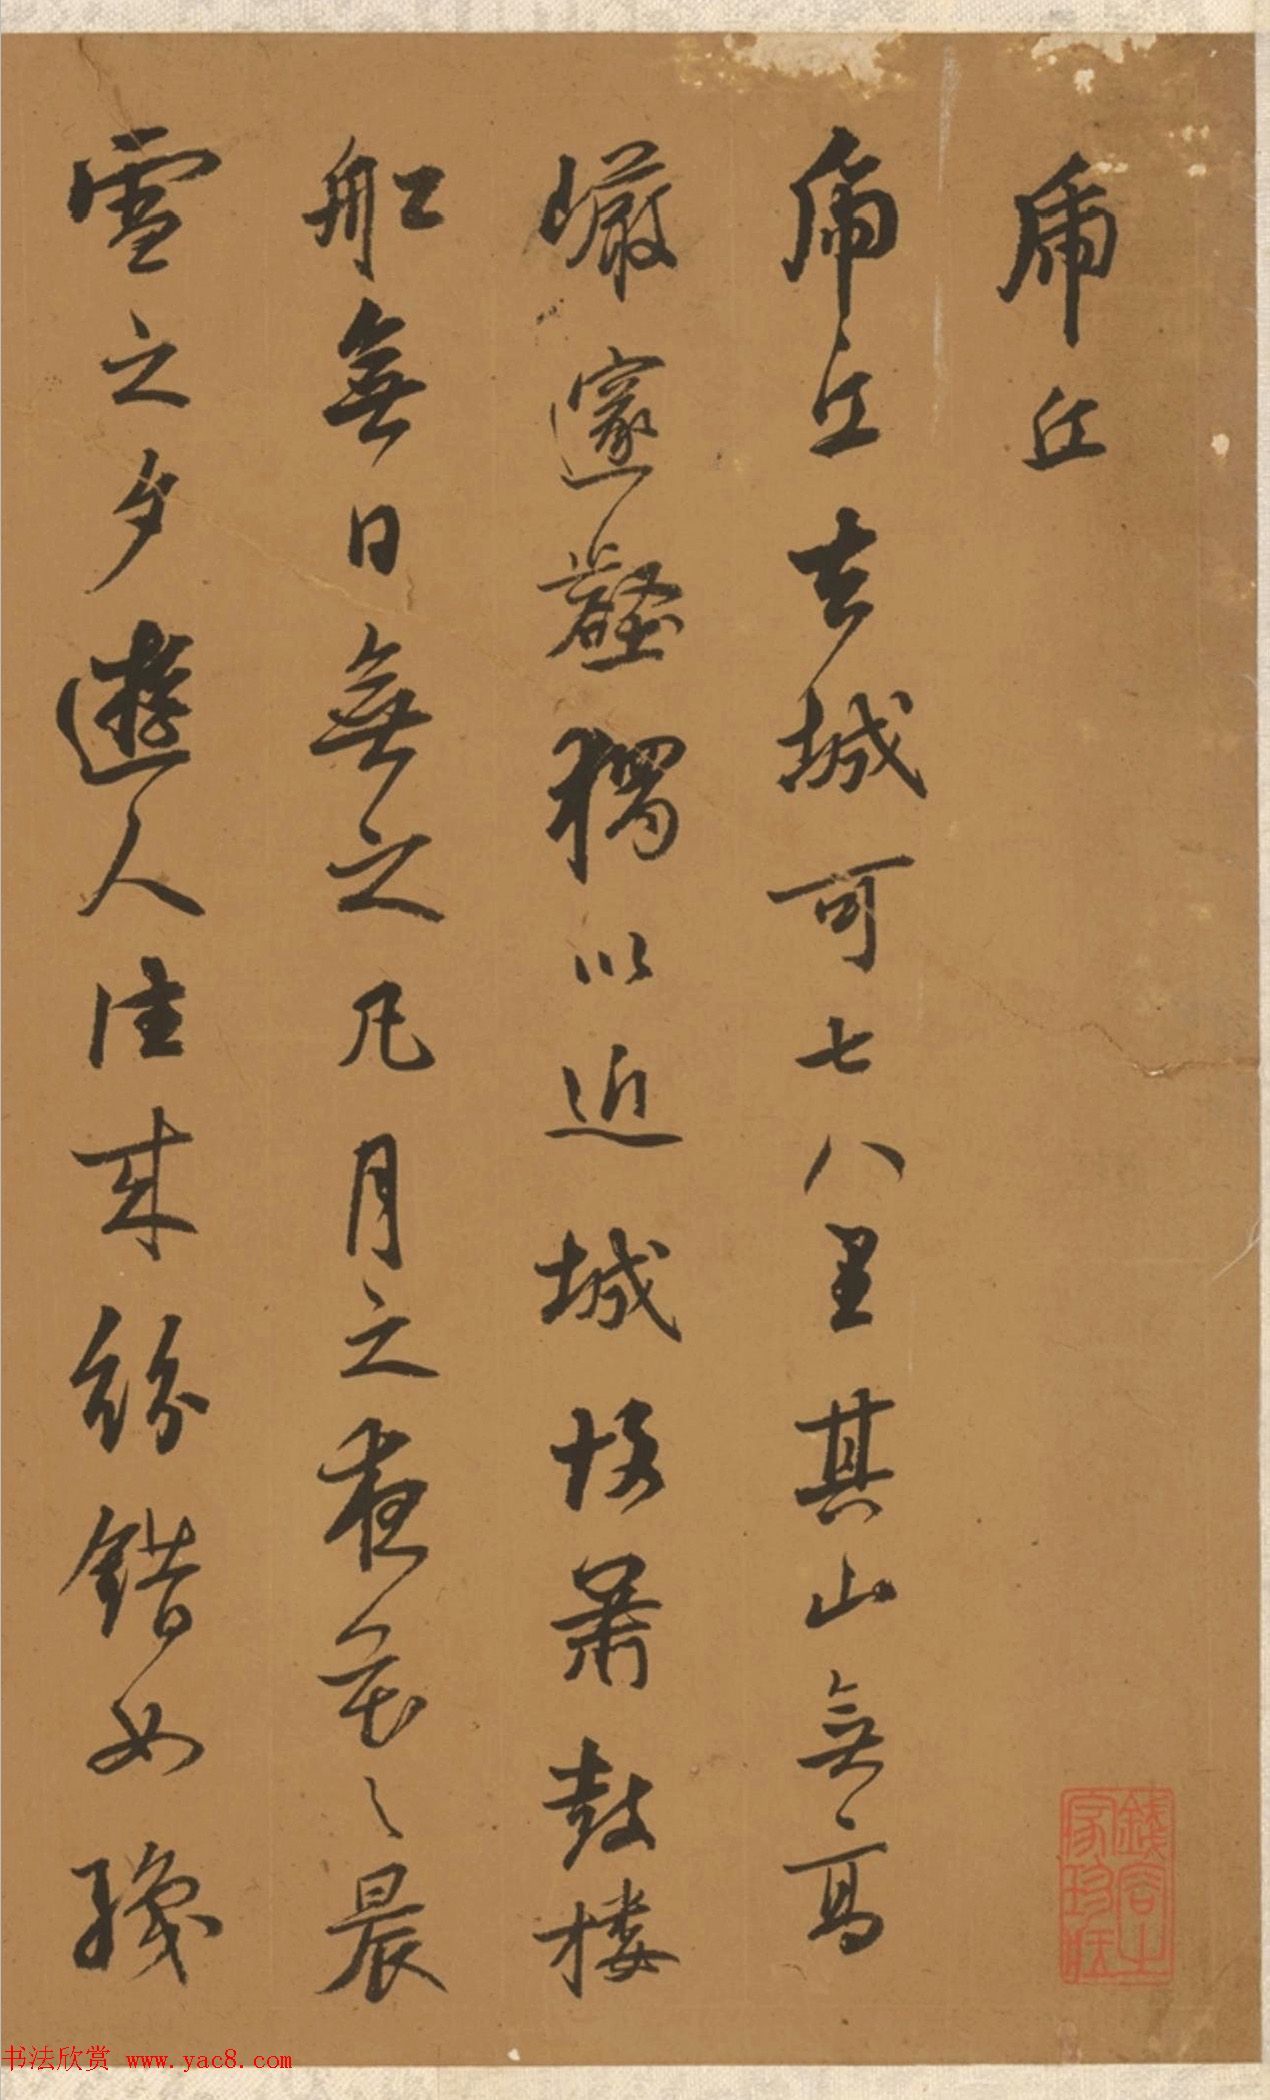 虎丘
虎丘去城可七八里其山無高
巖邃壑獨以近城故簫鼓樓
船無日無之凡月之夜花之晨
雪之夕遊人往来紛錯如織
書法欣赏 www.yac8.com